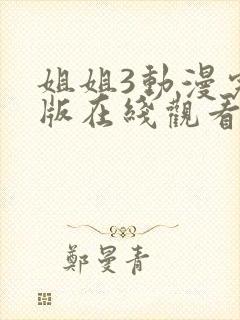 姐姐3動漫
版在綫觀看
鄭曼青